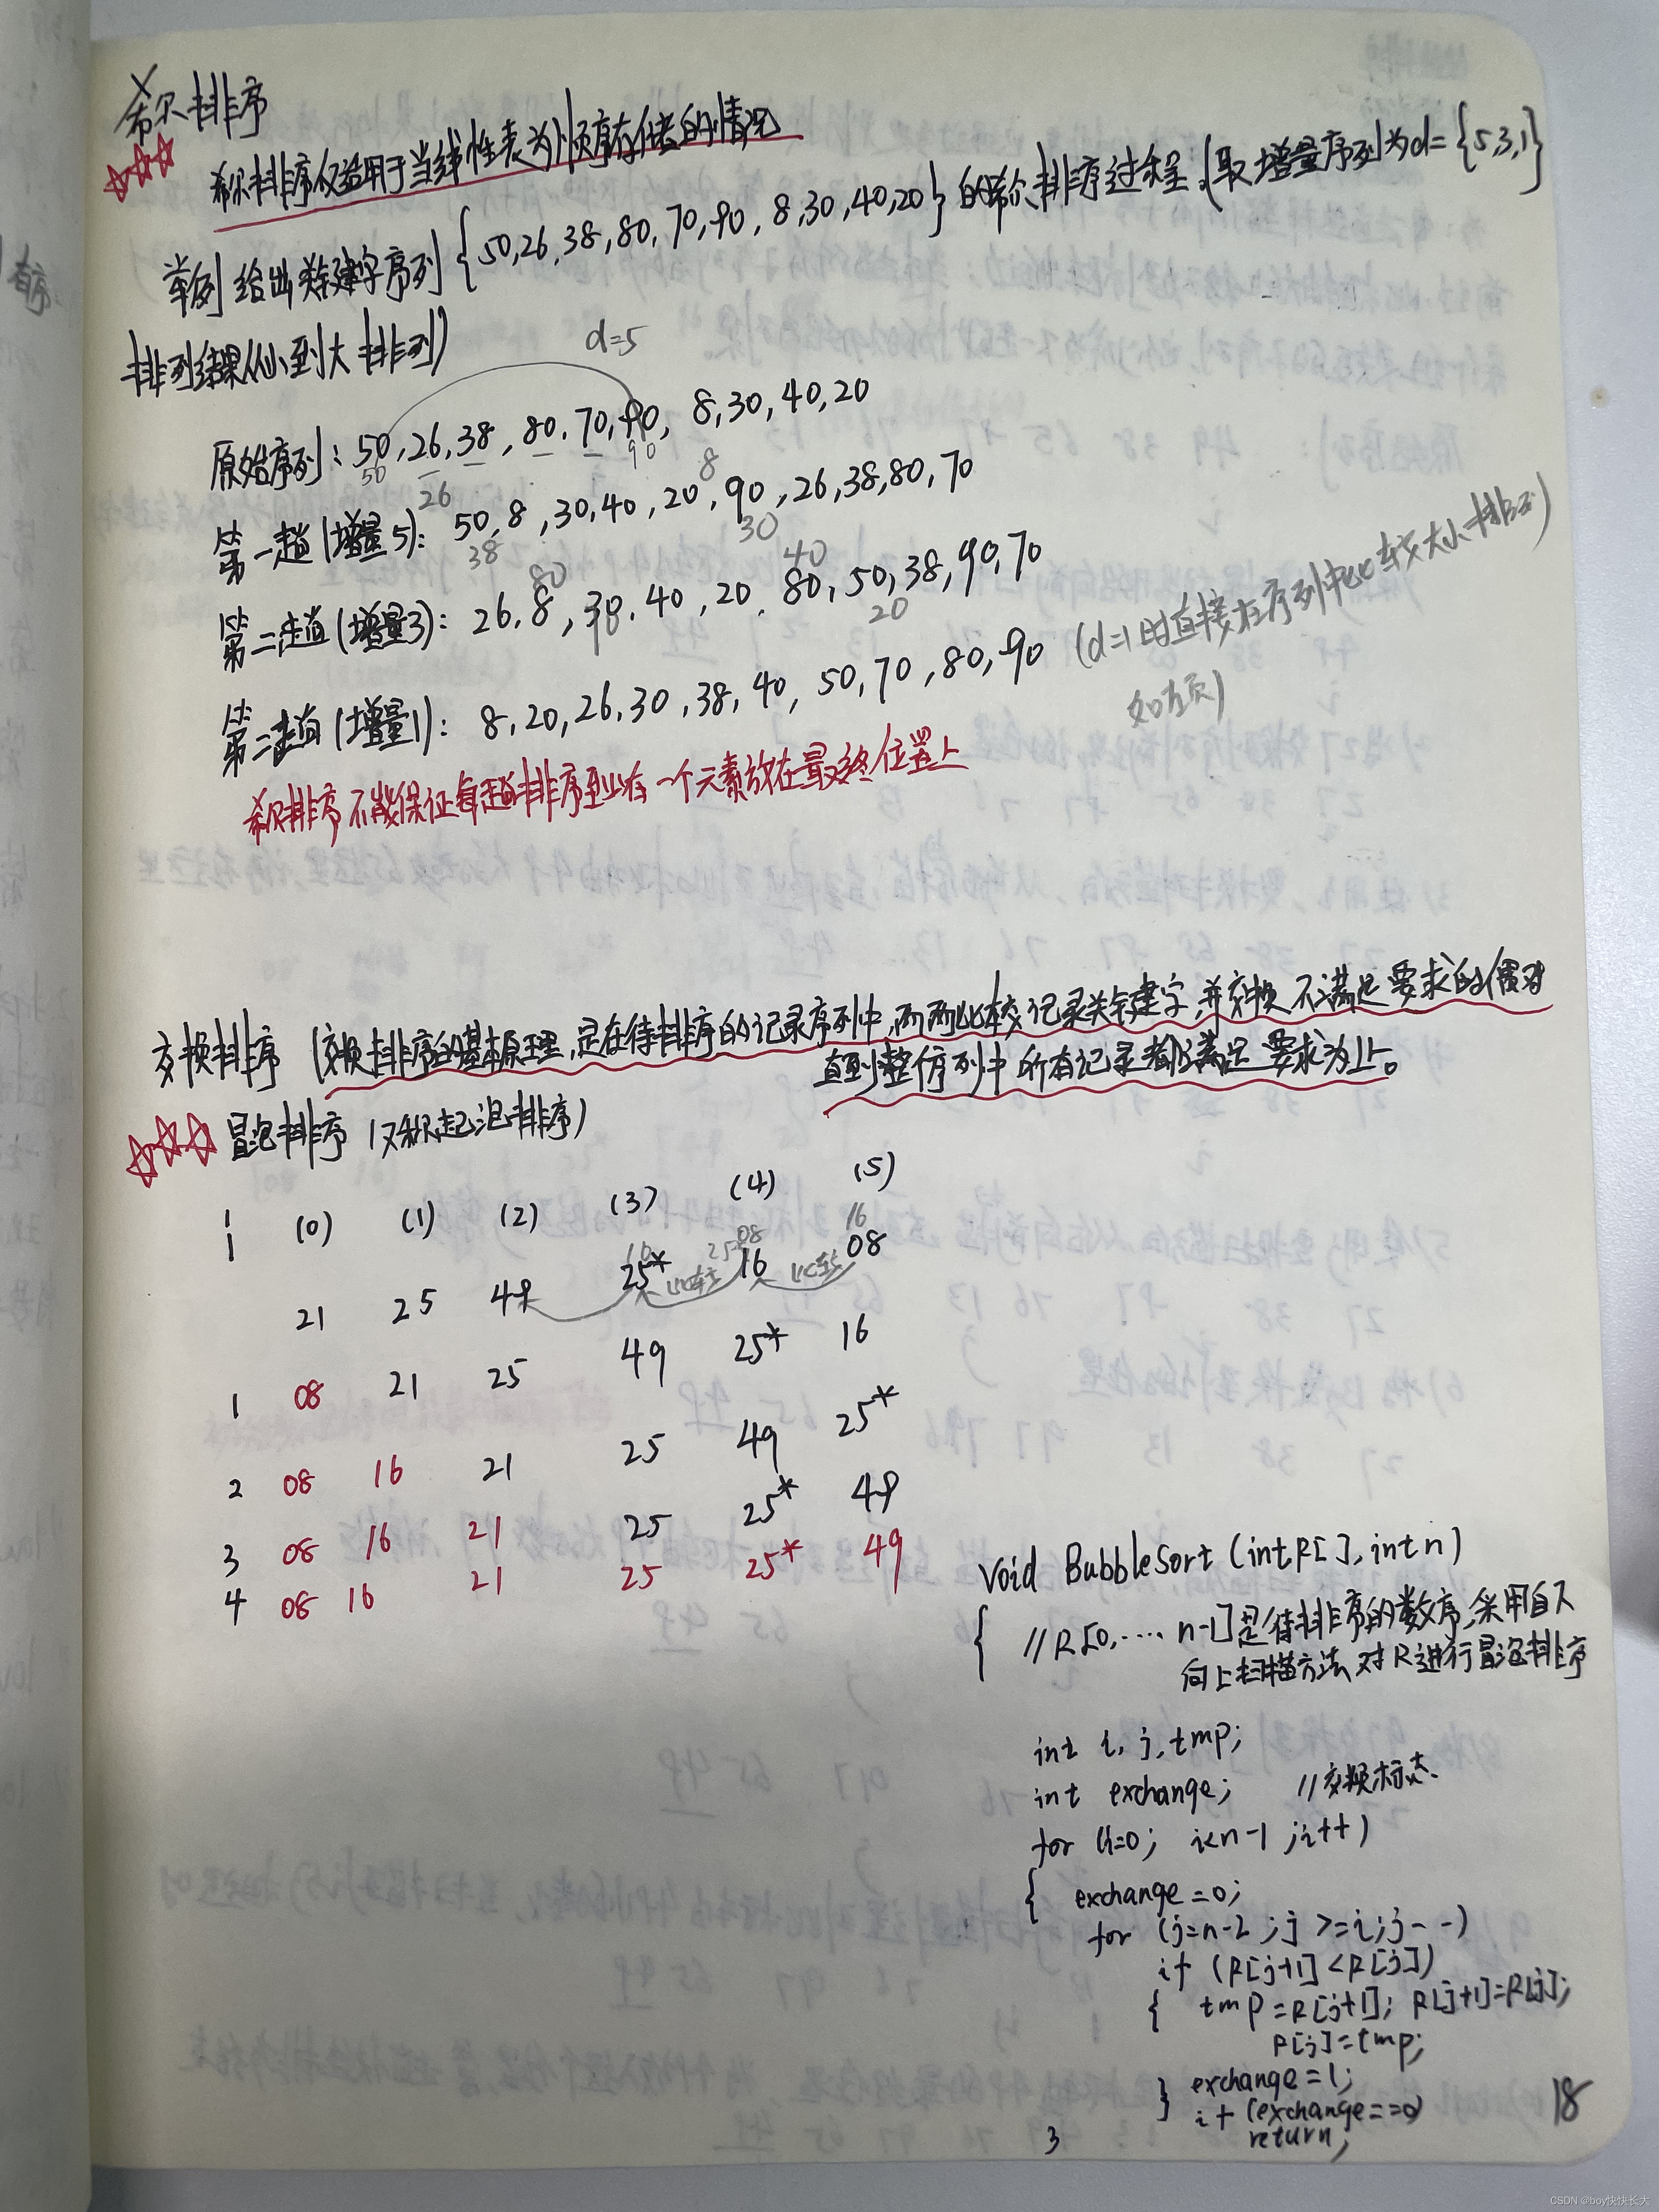 希尔排序
希尔排序仅适用于当线性表为顺序存储的情况
举例 给出关键字序列{50,26,38,80,70,90,8,30,40,20}的希尔排序过程.(取增量序列为d={5,3,1}
排列结果从小到大排列)
d=5
原始序列: 50,26,38,80,70,90,8,30,40,20
50 26 90 8
第一趟(增量5): 50,8,30,40,20,90,26,38,80,70
38 80 30 40 20
第二趟(增量3): 26,8,30,40,20,80,50,38,90,70
第三趟(增量1): 8,20,26,30,38,40,50,70,80,90 (d=1时直接在序列中比较大小排序)
如左页)
希尔排序不能保证每趟排序至少有一个元素放在最终位置上
交换排序 (交换排序的基本原理,是在待排序的记录序列中,两两比较记录关键字,并交换不满足要求的偶对
直到整个序列中所有记录都满足要求为止。
冒泡排序 (又称起泡排序)
i (0) (1) (2) (3) (4) (5)
16 25* 08 16
21 25 49 25* 16 08
比较 比较
1 08 21 25 49 25* 16
2 08 16 21 25 49 25*
3 08 16 21 25 25* 49
4 08 16 21 25 25* 49
void BubbleSort (int R[], int n)
{ //R[0,…… n-1]是待排序的数序,采用自下
向上扫描方法,对R进行冒泡排序
int i, j, tmp;
int exchange; //交换标志
for (i=0; i<n-1; i++)
{ exchange=0;
for (j=n-2; j>=i; j--)
if (R[j+1]<R[j])
{ tmp=R[j+1]; R[j+1]=R[j];
R[j]=tmp;
exchange=1;
}
if (exchange==0)
return;
}
18
CSDN @boy快快长大